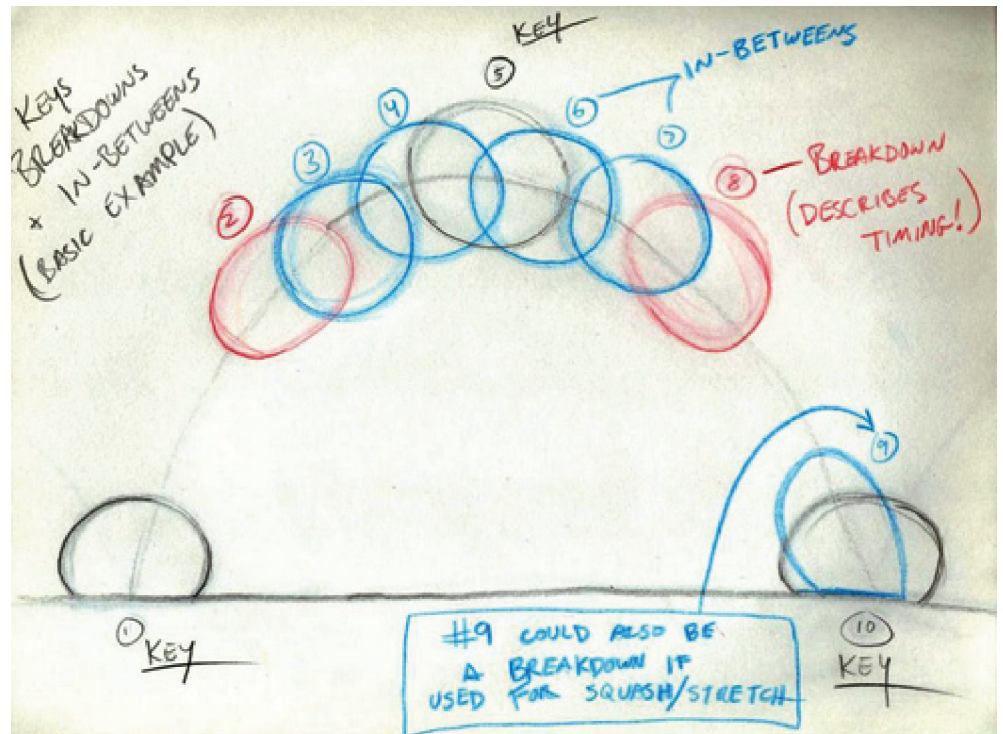 KEYS
BREAKDOWNS
+ IN-BETWEENS
(BASIC EXAMPLE)
KEY
5
IN-BETWEENS
4
6
7
3
2
8
BREAKDOWN
(DESCRIBES
TIMING!)
9
1
KEY
10
KEY
#9 COULD ALSO BE
A BREAKDOWN IF
USED FOR SQUASH/STRETCH